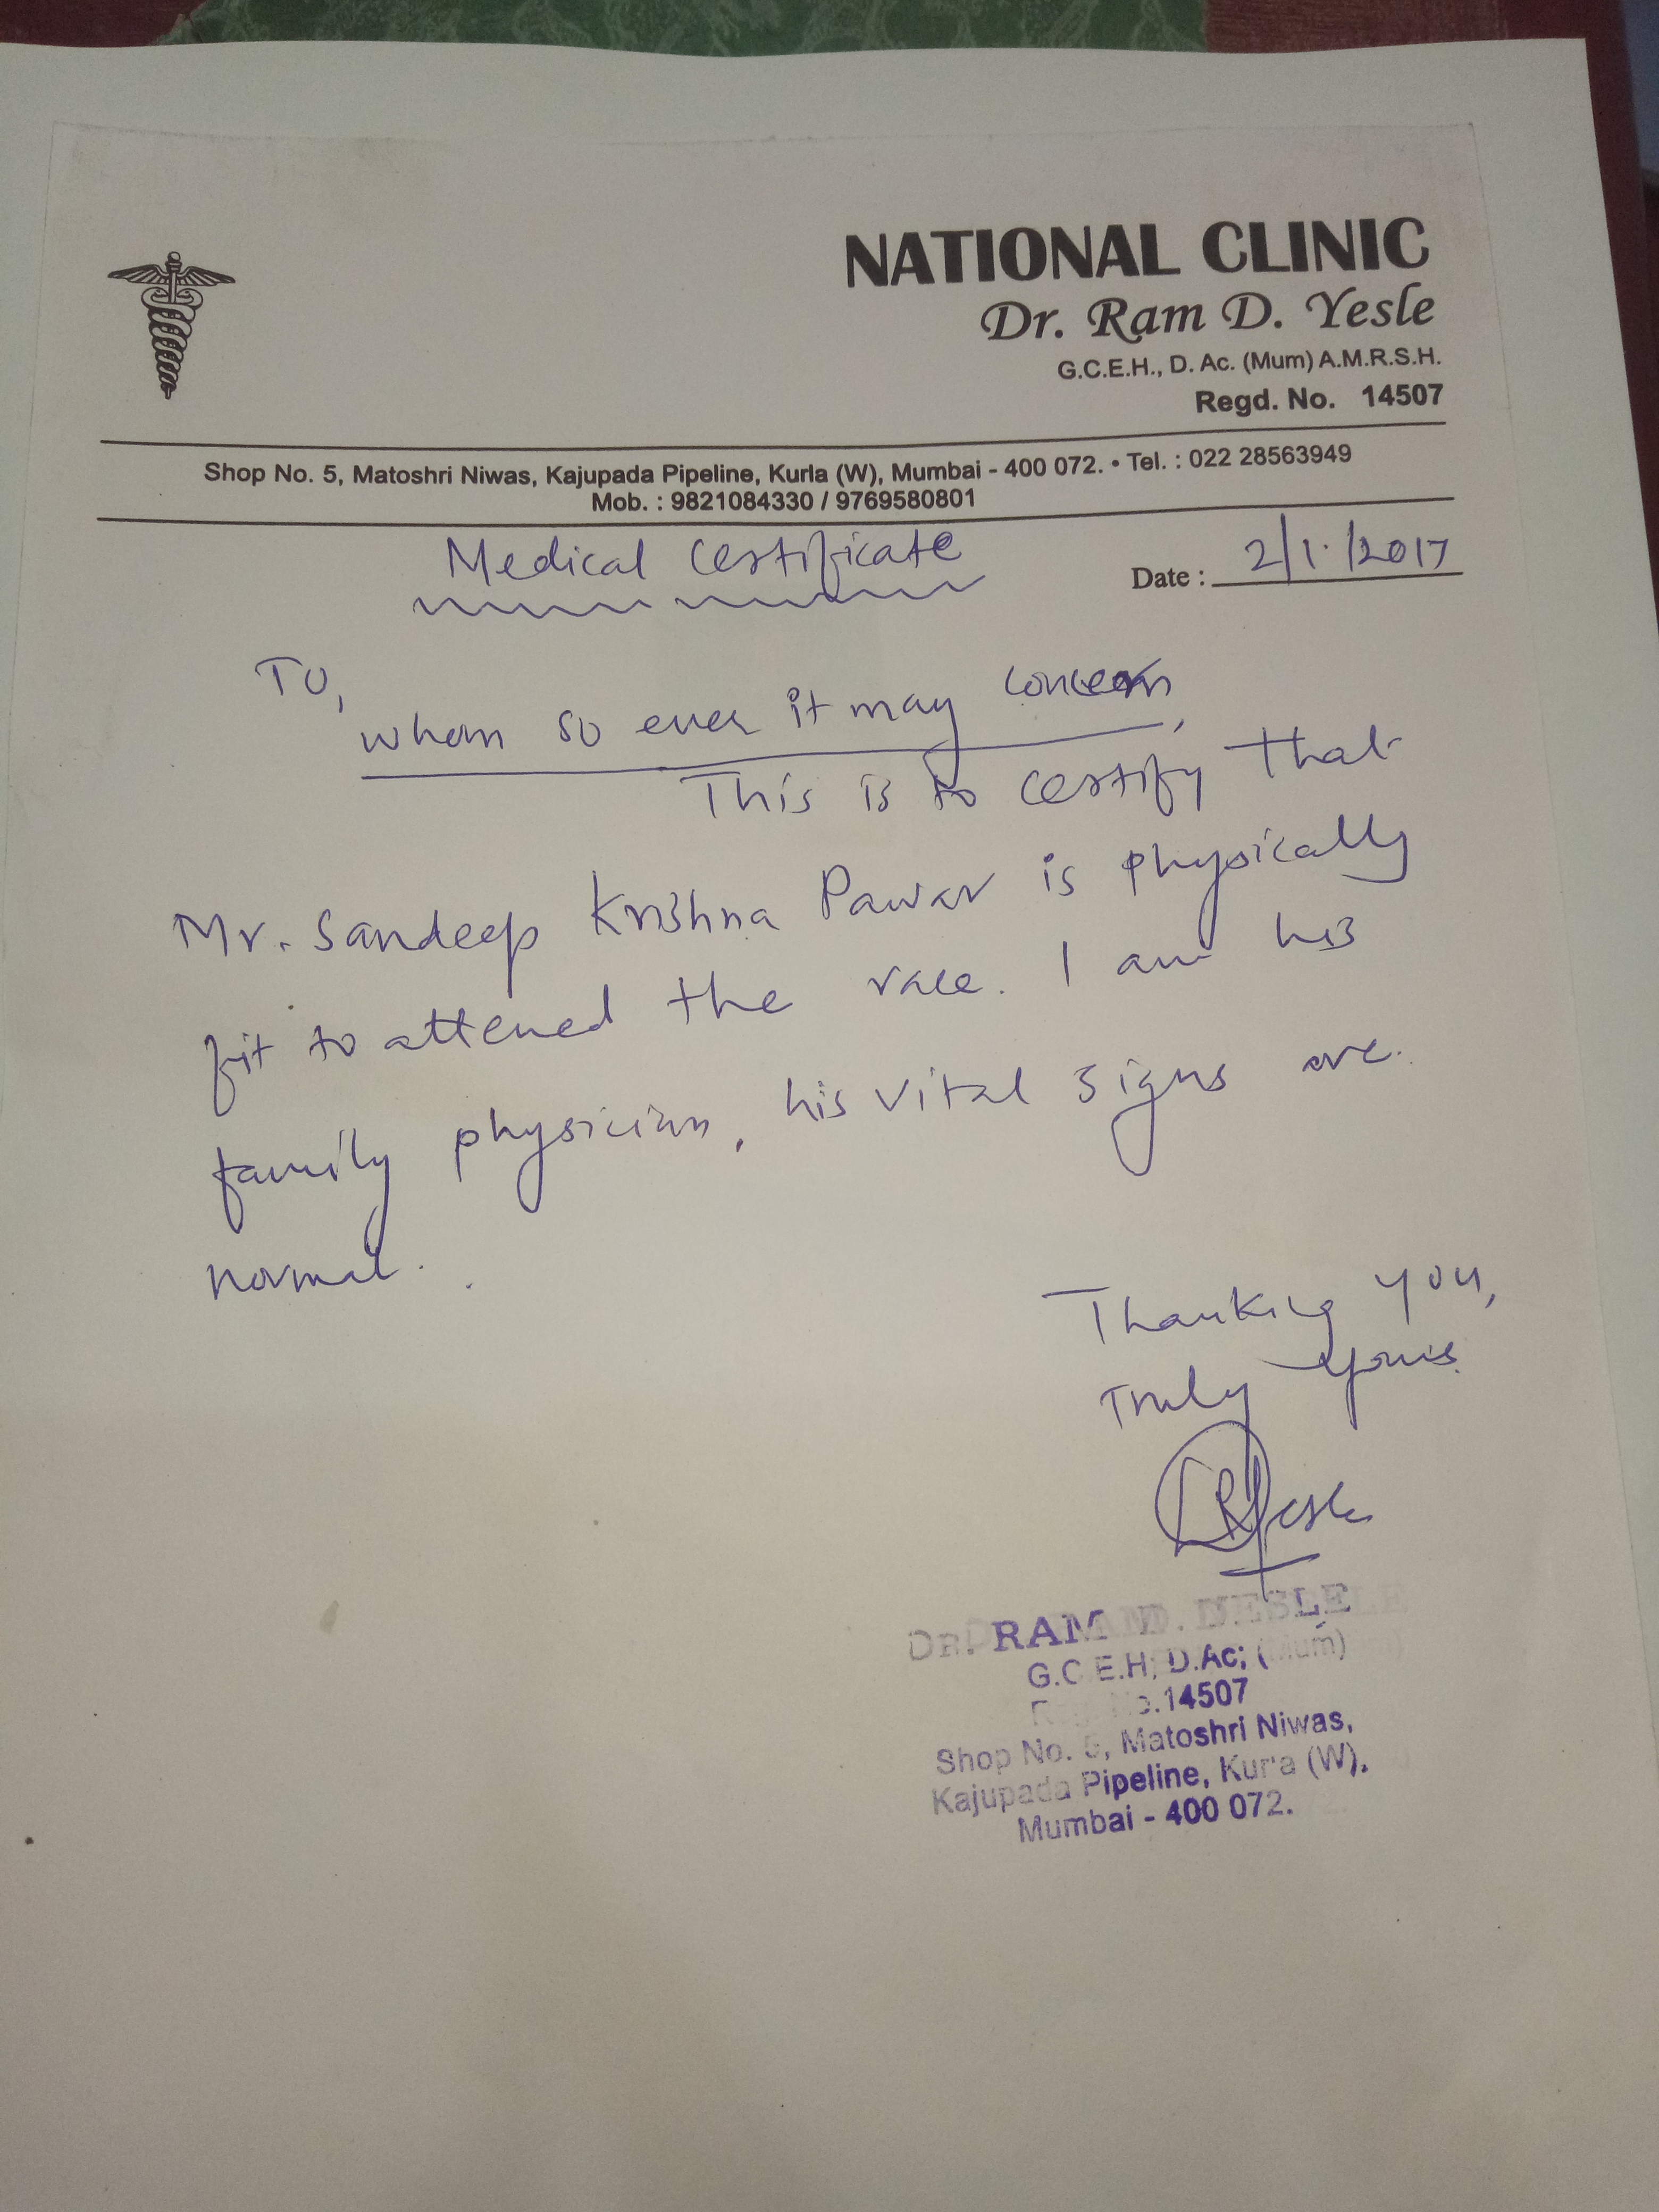 NATIONAL CLINIC
Dr. Ram D. Yesle
G.C.E.H., D. Ac. (Mum) A.M.R.S.H.
Regd. No. 14507
Shop No. 5, Matoshri Niwas, Kajupada Pipeline, Kurla (W), Mumbai - 400 072. • Tel. : 022 28563949
Mob. : 9821084330 / 9769580801
Medical Certificate
Date : 2/1/2017
To,
whom so ever it may concern,
This is to certify that
Mr. Sandeep Krishna Pawar is physically
fit to attened the race. I am his
family physician, his vital signs are
normal.
Thanking you,
Truly yours
RYesle
DR. RAM D. YESLE
G.C.E.H; D.Ac; (Mum)
Reg. No.14507
Shop No. 5, Matoshri Niwas,
Kajupada Pipeline, Kurla (W),
Mumbai - 400 072.